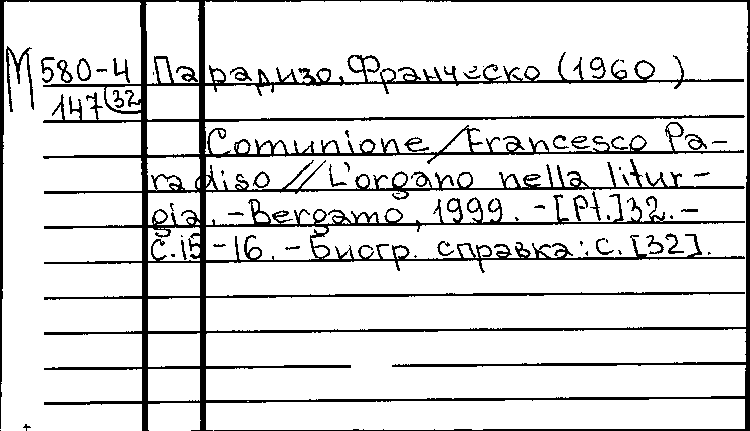 М 580-4 Парадизо, Франческо (1960 )
147 (32
Comunione / Francesco Pa-
radiso // L'organo nella litur-
gia. - Bergamo, 1999. - [Pt.]32. -
С. 15-16. - Биогр. справка: с. [32].